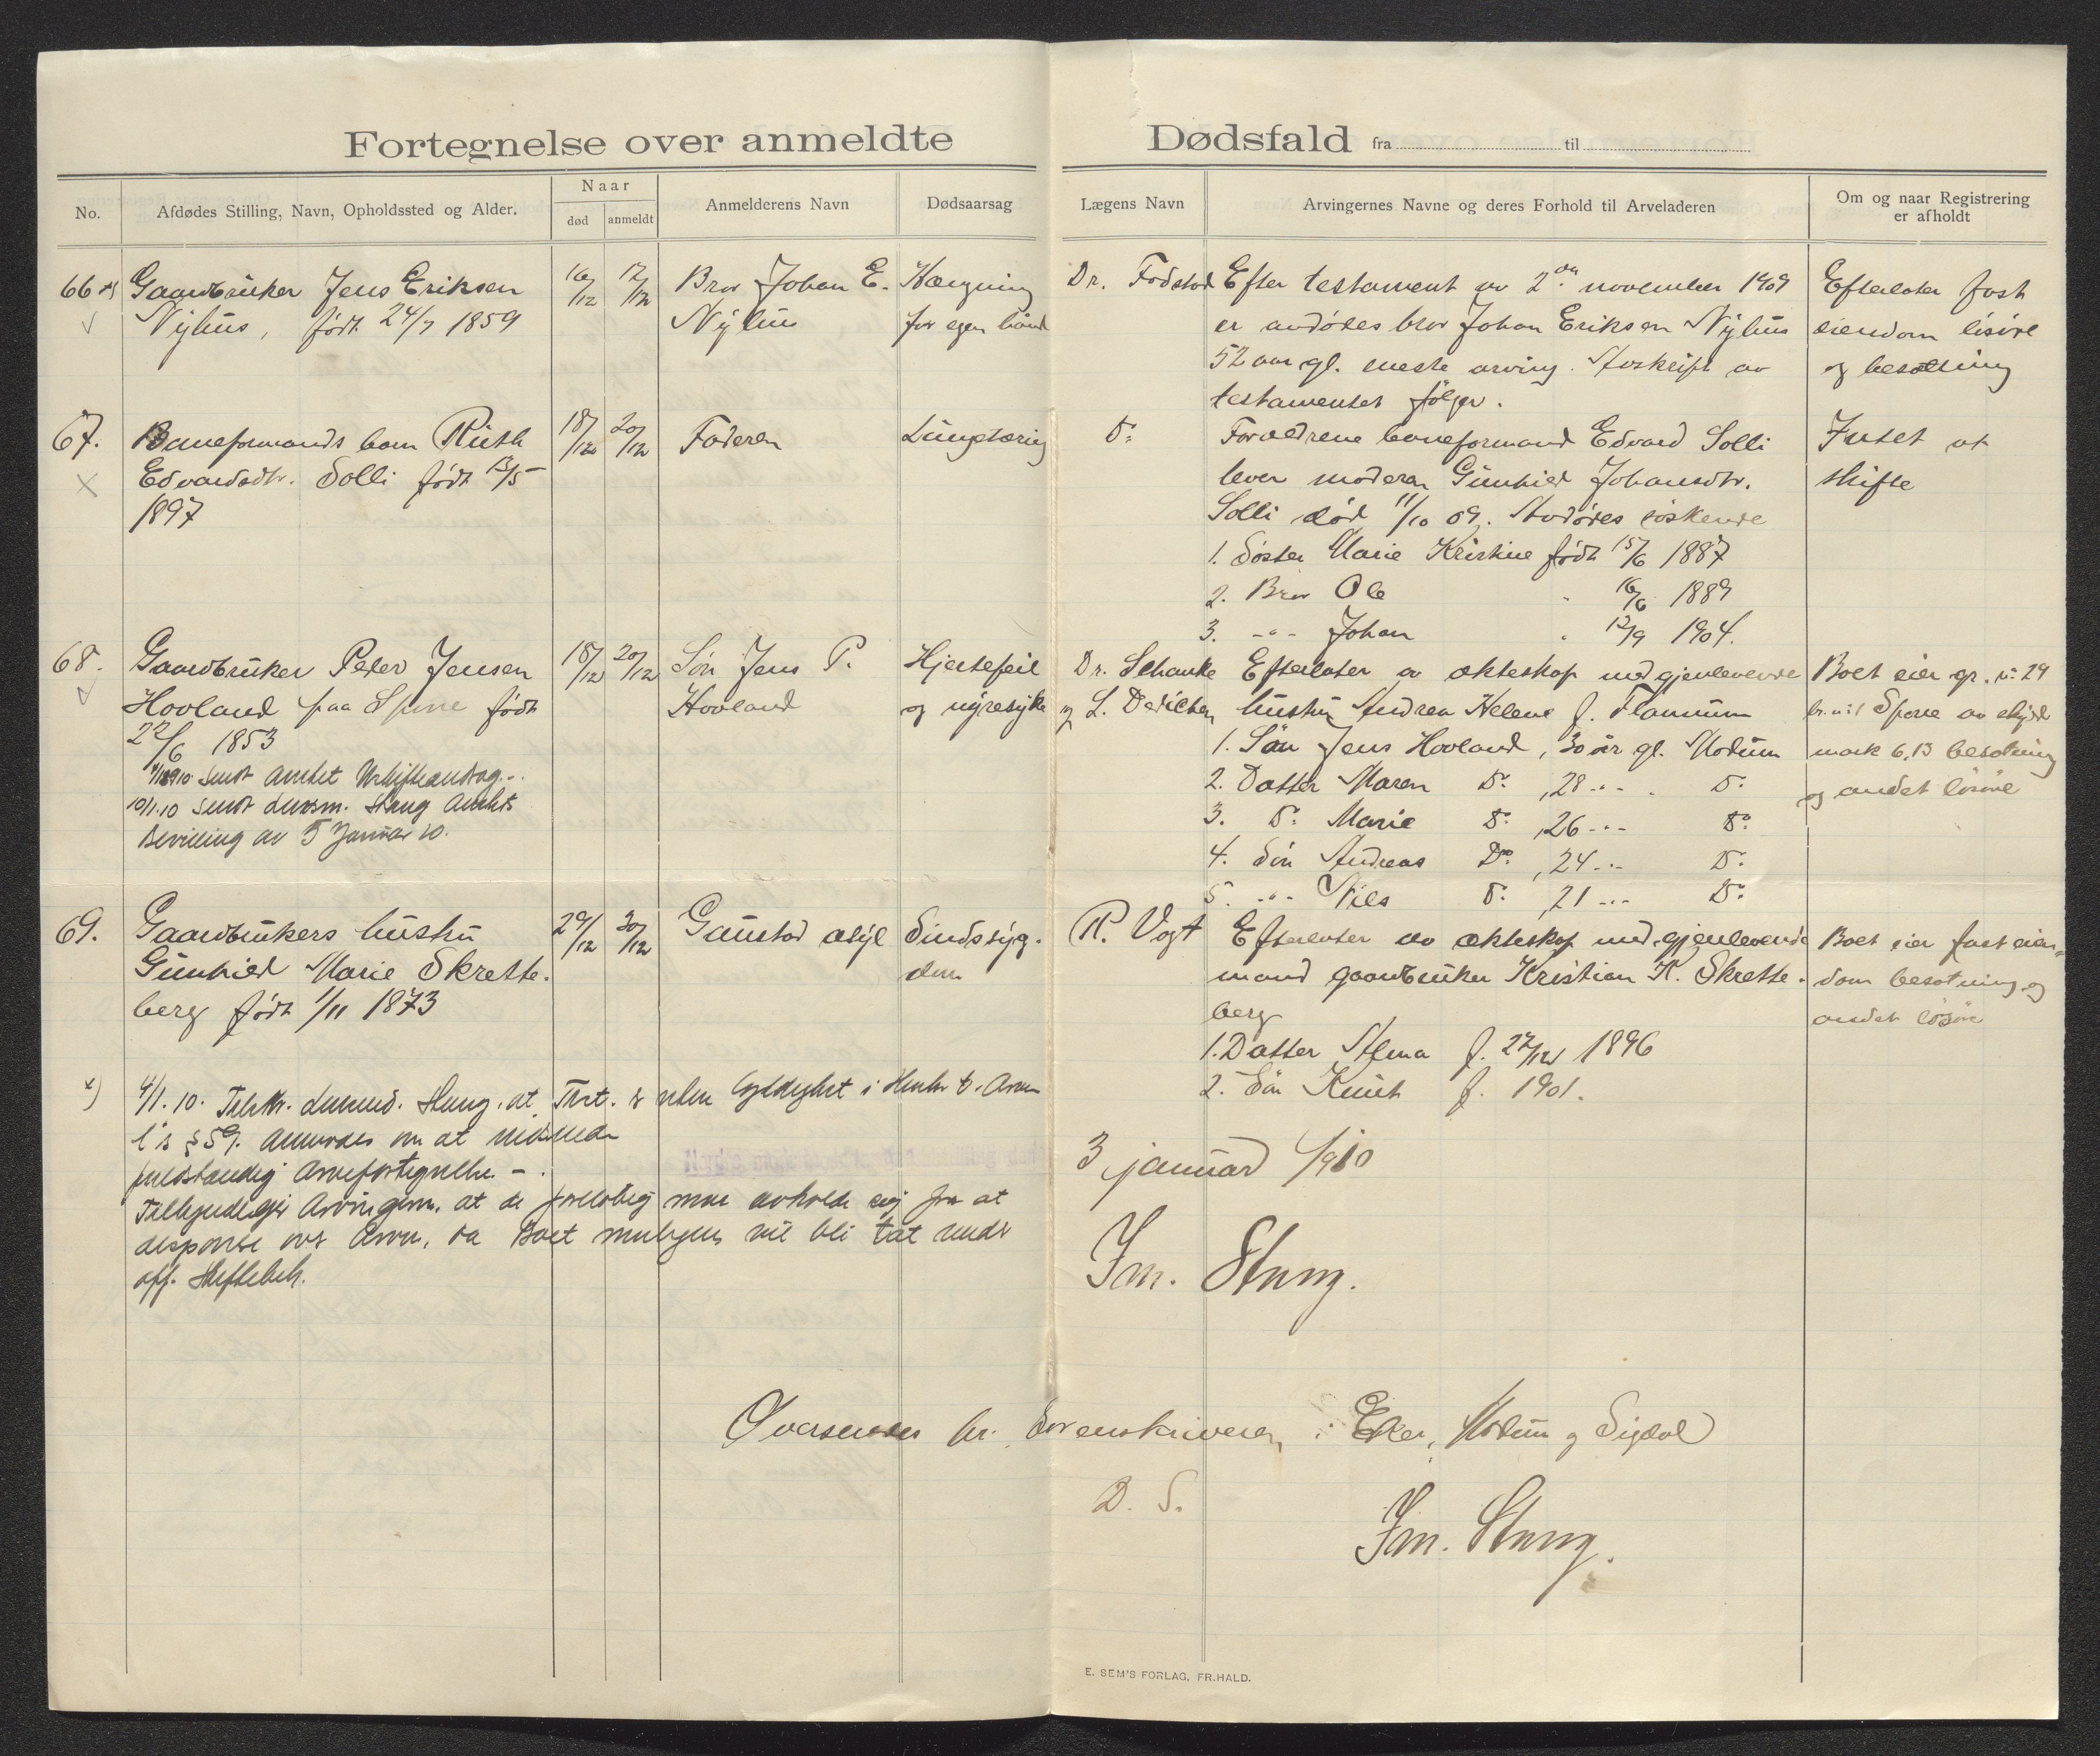 Fortegnelse over anmeldte Dødsfald fra til
No.
Afdødes Stilling, Navn, Opholdssted og Alder.
Naar
død
anmeldt
Anmelderens Navn
Dødsaarsag
Lægens Navn
Arvingernes Navne og deres Forhold til Arveladeren
Om og naar Registrering
er afholdt
66 x)
Gaardbruker Jens Eriksen
Nyhus, født 24/7 1859
16/12
17/12
Bror Johan E.
Nyhus
Hængning
for egen hånd
Dr. Fodstad
Efter testament av 2den november 1909
er avdødes bror Johan Eriksen Nyhus
52 aar gl. eneste arving. Avskrift av
testamentet følger.
Efterlater fast
eiendom løsøre
og besætning
67.
Baneformands barn Ruth
Edvardsdtr. Solli født 13/5
1897
18/12
20/12
Faderen
Lungetæring
Do
Forældrene baneformand Edvard Solli
lever moderen Gunhild Johansdtr.
Solli død 11/10 09. Avdødes søskende
1. Søster Marie Kristine født 15/6 1887
2. Bror Ole " 16/6 1889
3. -"- Johan " 12/9 1904.
Intet at
skifte
68.
Gaardbruker Peder Jensen
Hovland paa Spone født
22/6 1853
sendt Amtet
10/1.10 sendt lensm. Stang Amtets
Bevilling av 5 Januar 10.
18/12
20/12
Søn Jens P.
Hovland
Hjertefeil
og nyresyke
Dr. Schanke
og L. Dedichen
Efterlater av ekteskap med gjenlevende
hustru Andrea Helene f. Flannum
1. Søn Jens Hovland, 30 år gl. Modum
2. Datter Maren Do ,28 -"- Do
3. Do Marie Do ,26 -"- Do
4. Søn Andreas Do ,24 -"- Do
5. -"- Nils Do ,21 -"- Do
Boet eier gr. no 29
br. no 1 Spone av skyld
mark 6,13 besætning
og andet løsøre
69.
Gaardbrukers hustru
Gunhild Marie Skrette-
berg født 1/11 1873
29/12
30/12
Gaustad asyl
Sindssyg-
dom
R. Vogt
Efterlater av ekteskap med gjenlevende
mand gaardbruker Kristian K. Skrette-
berg
1. Datter Alma f. 27/12 1896
2. Søn Knut f. 1901.
Boet eier fast eien-
dom besætning og
andet løsøre
x) 4/1.10. Tilskr. lensmd. Stang, at Test. er uten Gyldighet i Henh. t. Arve
l's § 59. Anmodes om at indsende
fuldstændig Arvefortegnelse -.
Tilkjendegir Arvingerne, at de foreløbig maa avholde sig fra at
disponere over Arven, da Boet muligens vil bli tat under
off. Skiftebeh.
3 januar 1910
Im. Stang.
Oversendes hr. Sorenskriveren i Eker, Modum og Sigdal
D. S.
Im. Stang.
E. SEM'S FORLAG, FR.HALD.